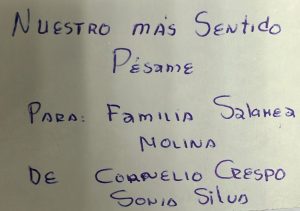 Nuestro más Sentido
Pésame
Para: Familia Salamea
Molina
De Cornelio Crespo
Sonia Silva